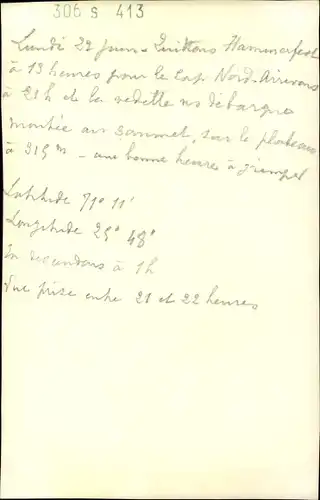 306 s 413
Lundi 22 Juin - Quittons Hammerfest
à 13 heures pour le Cap Nord - Arrivons
à 21h et la vedette ns débarque
montée au sommet, sur le plateau
à 315m - une bonne heure à grimper
Latitude 71° 11'
Longitude 25° 48'
En descendons à 1h
Vue prise entre 21 et 22 heures